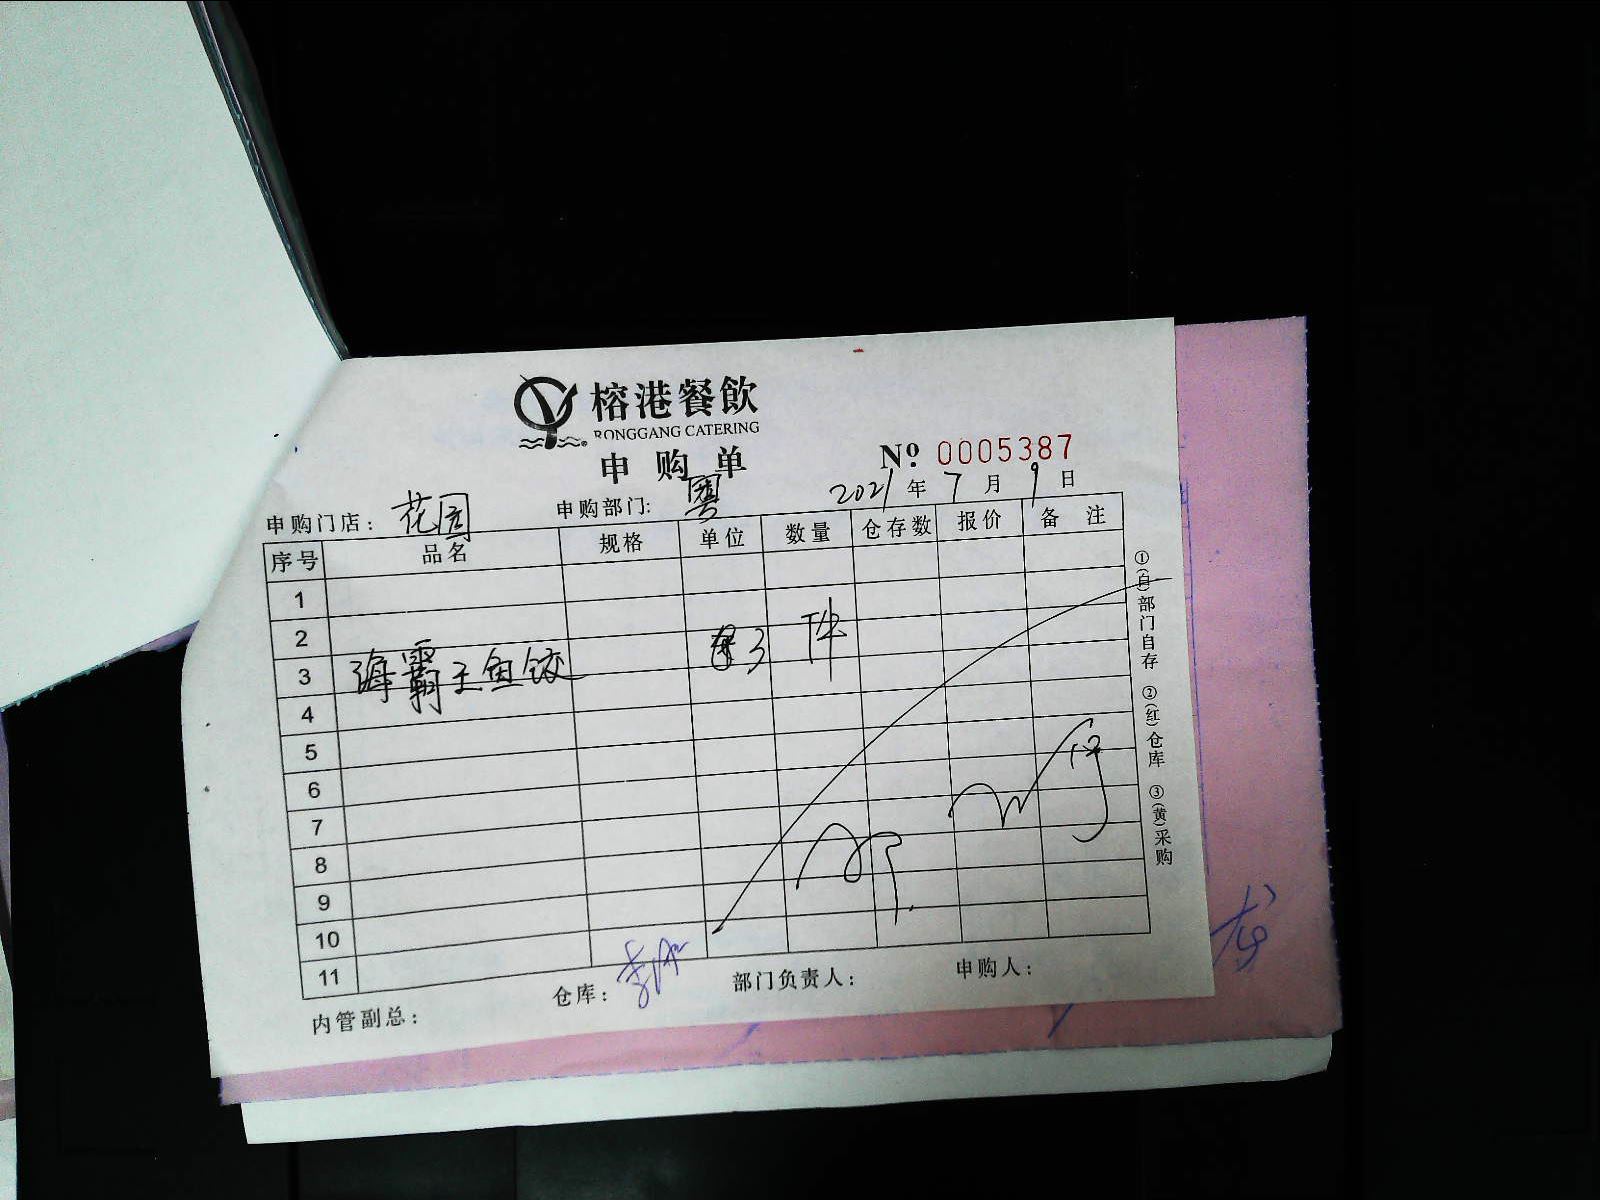 榕港餐飲
RONGGANG CATERING
申购单
№ 0005387
申购门店： 花园 申购部门： 粤 2021 年 7 月 9 日
序号 品名 规格 单位 数量 仓存数 报价 备注
1
2
3 海霸王鱼饺 3 件
4
5
6
7
8
9
10
11
内管副总： 仓库： 部门负责人： 申购人：
①(白)部门自存 ②(红)仓库 ③(黄)采购